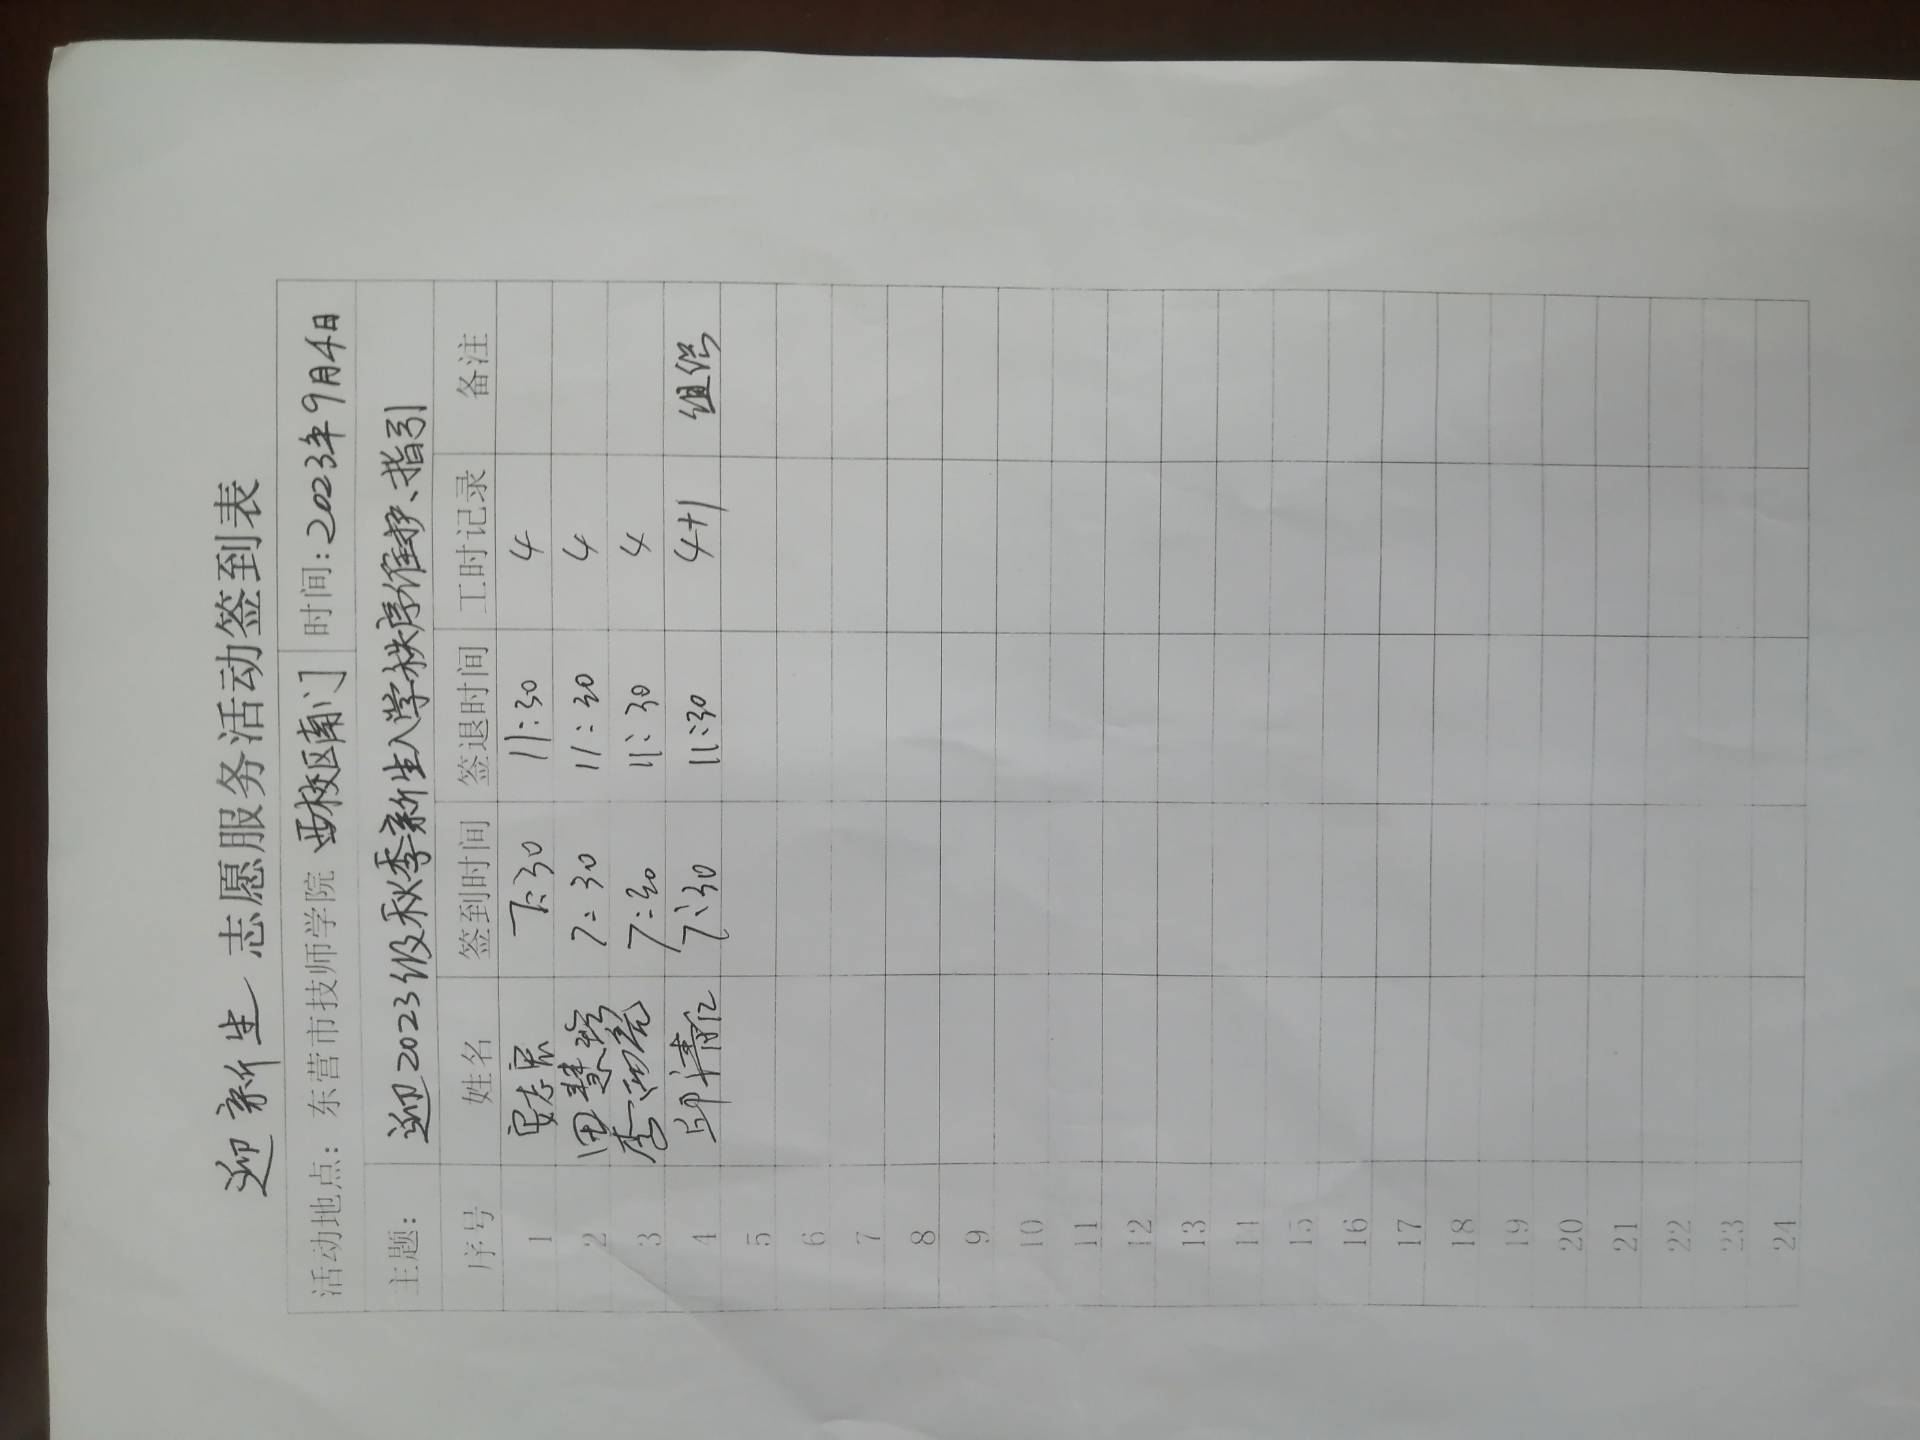 迎新生 志愿服务活动签到表
活动地点：东营市技师学院 西校区南门 时间：2023年9月4日
主题： 迎2023级秋季新生入学秩序维护、指引
序号 姓名 签到时间 签退时间 工时记录 备注
1 7:30 11:30 4
2 田慧玲 7:30 11:30 4
3 李鸿亮 7:30 11:30 4
4 邱清 7:30 11:30 4+1 组织
5
6
7
8
9
10
11
12
13
14
15
16
17
18
19
20
21
22
23
24